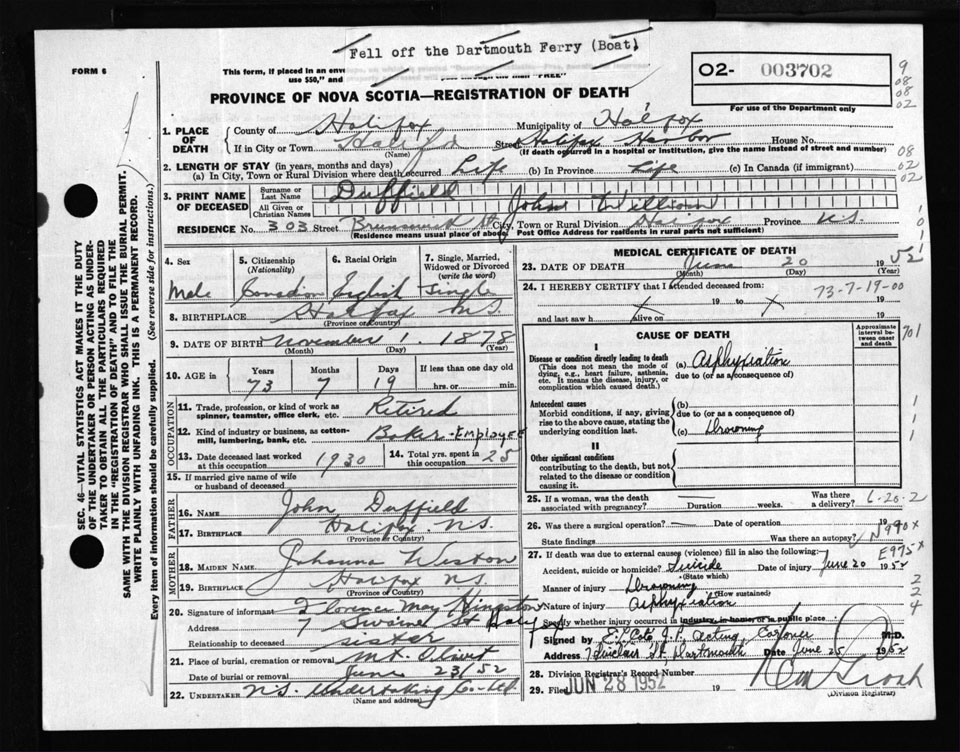 Fell off the Dartmouth Ferry (Boat)
FORM 6
This form, if placed in an
use $50," and
02- 003702
For use of the Department only
9
08
08
02
PROVINCE OF NOVA SCOTIA—REGISTRATION OF DEATH
1. PLACE OF DEATH
County of Halifax Municipality of Halifax
If in City or Town Halifax Street Halifax Harbor House No.
(Name) (If death occurred in a hospital or institution, give the name instead of street and number)
08
02
02
2. LENGTH OF STAY (in years, months and days)
(a) In City, Town or Rural Division where death occurred Life (b) In Province Life (c) In Canada (if immigrant)
3. PRINT NAME OF DECEASED
Surname or Last Name Duffield
All Given or Christian Names John William
RESIDENCE No. 303 Street Brunswick St City, Town or Rural Division Halifax Province N.S.
(Residence means usual place of abode. Post Office Address for residents in rural parts not sufficient)
4. Sex Male
5. Citizenship (Nationality) Canadian
6. Racial Origin English
7. Single, Married, Widowed or Divorced (write the word) Single
8. BIRTHPLACE Halifax N.S.
(Province or Country)
9. DATE OF BIRTH November 1 1878
(Month) (Day) (Year)
10. AGE in Years Months Days If less than one day old
73 7 19 hrs. or min.
OCCUPATION
11. Trade, profession, or kind of work as spinner, teamster, office clerk, etc. Retired
12. Kind of industry or business, as cotton-mill, lumbering, bank, etc. Baker - EMPLOYEE
13. Date deceased last worked at this occupation 1930
14. Total yrs. spent in this occupation 25
15. If married give name of wife or husband of deceased
FATHER
16. NAME John Duffield
17. BIRTHPLACE Halifax N.S.
(Province or Country)
MOTHER
18. MAIDEN NAME Johanna Weston
19. BIRTHPLACE Halifax N.S.
(Province or Country)
20. Signature of informant Florence May Hingston
Address 7 St
Relationship to deceased sister
21. Place of burial, cremation or removal Mt. Olivet
Date of burial or removal June 23/52
22. UNDERTAKER N.S. Undertaking Co. Ltd.
(Name and address)
MEDICAL CERTIFICATE OF DEATH
23. DATE OF DEATH June 20 1952
(Month) (Day) (Year)
24. I HEREBY CERTIFY that I attended deceased from: 73-7-19-00
19 to 19
and last saw h alive on 19
CAUSE OF DEATH
Approximate interval between onset and death
701
I
Disease or condition directly leading to death
(This does not mean the mode of dying, e.g., heart failure, asthenia, etc. It means the disease, injury, or complication which caused death.)
(a) Asphyxiation
due to (or as a consequence of)
Antecedent causes
Morbid conditions, if any, giving rise to the above cause, stating the underlying condition last.
(b)
due to (or as a consequence of)
(c) Drowning
II
Other significant conditions
contributing to the death, but not related to the disease or condition causing it.
25. If a woman, was the death associated with pregnancy? Duration weeks. Was there a delivery? 6-20-2
26. Was there a surgical operation? Date of operation 19
State findings Was there an autopsy? N990x
27. If death was due to external causes (violence) fill in also the following: E975x
Accident, suicide or homicide? Suicide Date of injury June 20 1952
(State which)
Manner of injury Drowning
(How sustained)
Nature of injury Asphyxiation
Specify whether injury occurred in industry, in home, or in public place
Signed by J.P. Acting Coroner M.D.
Address Sinclair St. Dartmouth Date June 25 1952
28. Division Registrar's Record Number
29. Filed JUN 28 1952 19
(Division Registrar)
SEC. 46—VITAL STATISTICS ACT MAKES IT THE DUTY
OF THE UNDERTAKER OR PERSON ACTING AS UNDER-
TAKER TO OBTAIN ALL THE PARTICULARS REQUIRED
IN THE "REGISTRATION OF DEATH" AND TO FILE THE
SAME WITH THE DIVISION REGISTRAR WHO SHALL ISSUE THE BURIAL PERMIT.
WRITE PLAINLY WITH UNFADING INK. THIS IS A PERMANENT RECORD.
Every item of information should be carefully supplied. (See reverse side for instructions.)